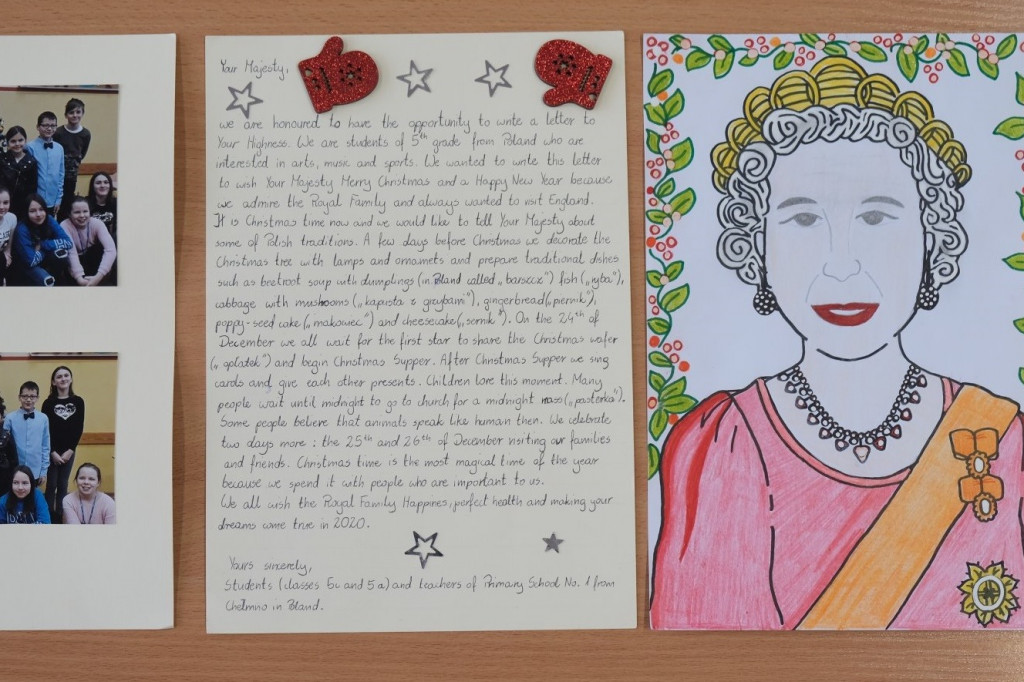 Your Majesty,
we are honoured to have the opportunity to write a letter to
Your Highness. We are students of 5th grade from Poland who are
interested in arts, music and sports. We wanted to write this letter
to wish Your Majesty Merry Christmas and a Happy New Year because
we admire the Royal Family and always wanted to visit England.
It is Christmas time now and we would like to tell Your Majesty about
some of Polish traditions. A few days before Christmas we decorate the
Christmas tree with lamps and ornamets and prepare traditional dishes
such as beetroot soup with dumplings (in Poland called „barszcz") fish („ryba"),
cabbage with mushooms („kapusta z grzybami"), gingerbread („piernik"),
poppy-seed cake („makowiec") and cheesecake („sernik"). On the 24th of
December we all wait for the first star to share the Christmas wafer
(„opłatek") and begin Christmas Supper. After Christmas Supper we sing
carols and give each other presents. Children love this moment. Many
people wait until midnight to go to church for a midnight mass („pasterka").
Some people believe that animals speak like human then. We celebrate
two days more: the 25th and 26th of December visiting our families
and friends. Christmas time is the most magical time of the year
because we spend it with people who are important to us.
We all wish the Royal Family Happines, perfect health and making your
dreams come true in 2020.
Yours sincerely,
Students (classes 5c and 5a) and teachers of Primary School No. 1 from
Chełmno in Poland.